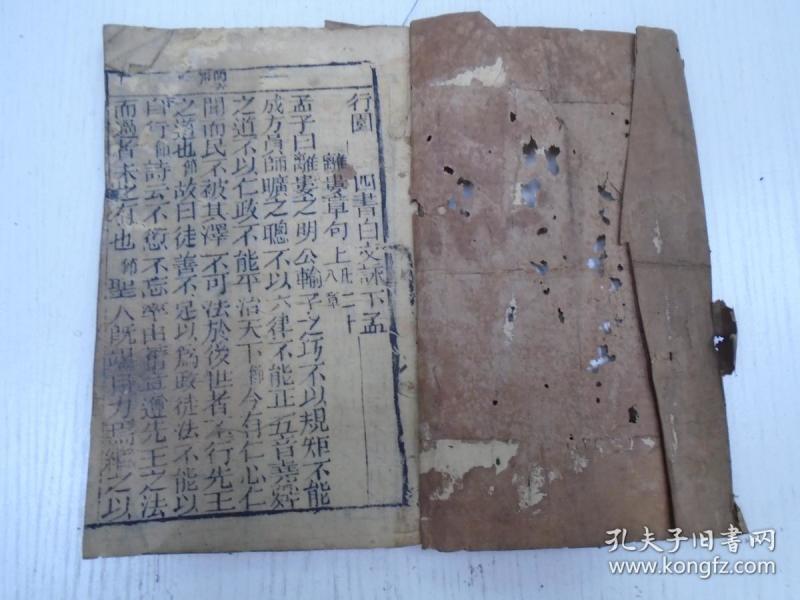 行園 四書白文 下孟
離婁章句上凡二十八章
孟子曰離婁之明公輸子之巧不以規矩不能
成方員師曠之聰不以六律不能正五音堯舜
之道不以仁政不能平治天下節今有仁心仁
聞而民不被其澤不可法於後世者不行先王
之道也節故曰徒善不足以為政徒法不能以
自行節詩云不愆不忘率由舊章遵先王之法
而過者未之有也節聖人既竭目力焉繼之以
孔夫子旧书网
www.kongfz.com